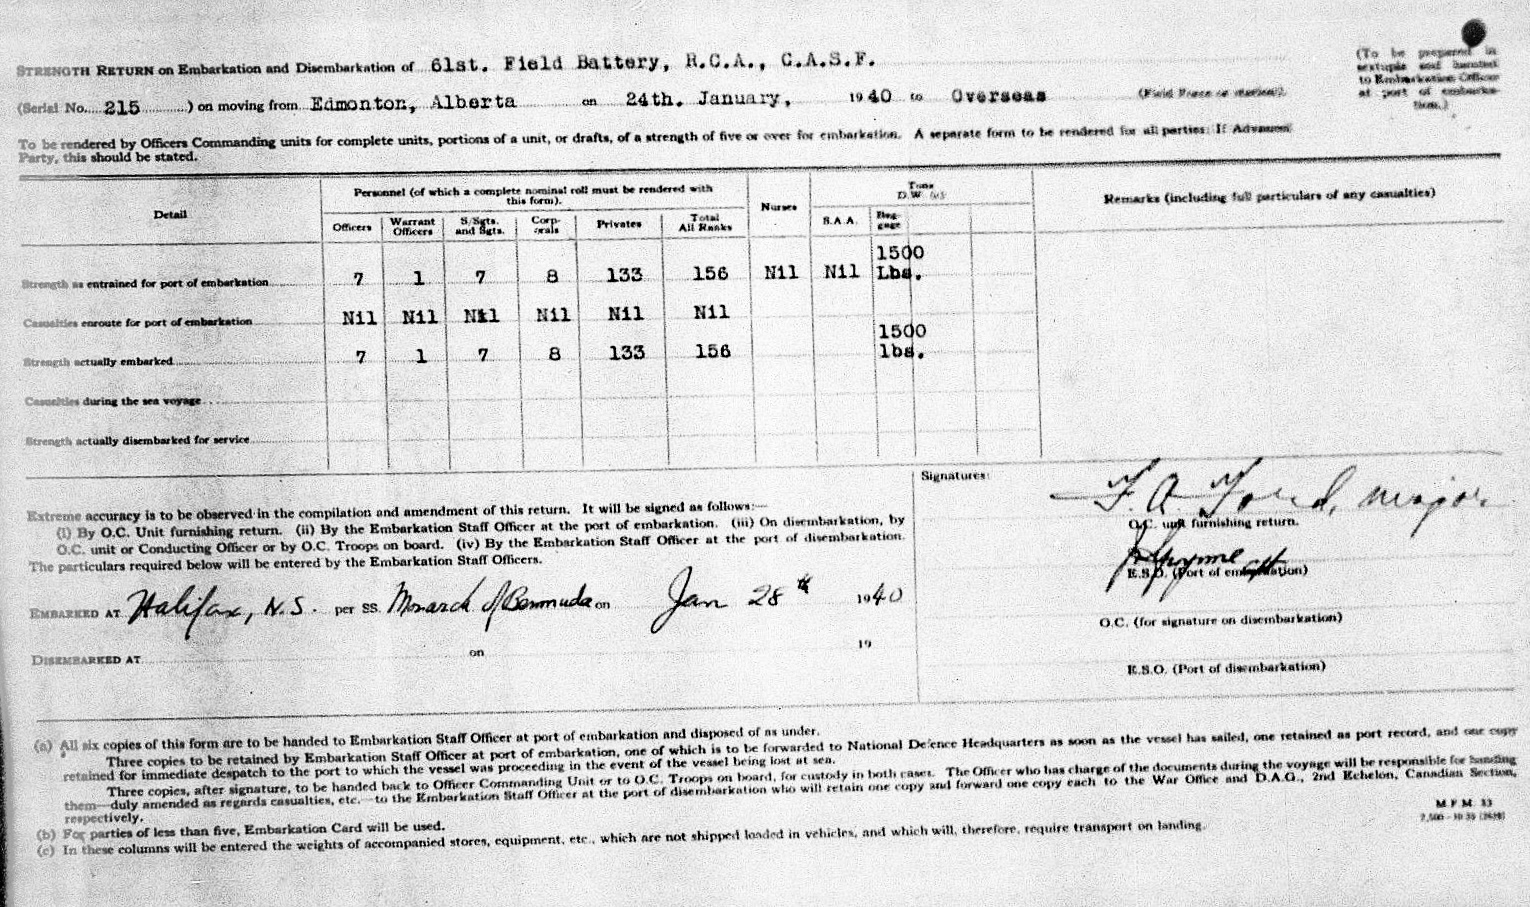 STRENGTH RETURN on Embarkation and Disembarkation of 61st. Field Battery, R.C.A., C.A.S.F.
(To be prepared in
sextuple and handed
to Embarkation Officer
at port of embarka-
tion.)
(Serial No. 215 ) on moving from Edmonton, Alberta on 24th. January, 1940 to Overseas (Field Force or station).
To be rendered by Officers Commanding units for complete units, portions of a unit, or drafts, of a strength of five or over for embarkation. A separate form to be rendered for all parties: If Advanced
Party, this should be stated.
Detail
Personnel (of which a complete nominal roll must be rendered with
this form).
Nurses
Tons
D.W.
Remarks (including full particulars of any casualties)
Officers Warrant Officers S/Sgts. and Sgts. Corp-orals Privates Total All Ranks S.A.A. Bag-gage
Strength as entrained for port of embarkation 7 1 7 8 133 156 Nil Nil 1500 Lbs.
Casualties enroute for port of embarkation Nil Nil Nil Nil Nil Nil
Strength actually embarked 7 1 7 8 133 156 1500 lbs.
Casualties during the sea voyage
Strength actually disembarked for service
Extreme accuracy is to be observed in the compilation and amendment of this return. It will be signed as follows:—
(i) By O.C. Unit furnishing return. (ii) By the Embarkation Staff Officer at the port of embarkation. (iii) On disembarkation, by
O.C. unit or Conducting Officer or by O.C. Troops on board. (iv) By the Embarkation Staff Officer at the port of disembarkation.
The particulars required below will be entered by the Embarkation Staff Officers.
EMBARKED AT Halifax, N.S. per SS. Monarch of Bermuda on Jan 28th 1940
DISEMBARKED AT on 19
Signatures:
F. A. Ford, major
O.C. unit furnishing return.
E.S.O. (Port of embarkation)
O.C. (for signature on disembarkation)
E.S.O. (Port of disembarkation)
(a) All six copies of this form are to be handed to Embarkation Staff Officer at port of embarkation and disposed of as under.
Three copies to be retained by Embarkation Staff Officer at port of embarkation, one of which is to be forwarded to National Defence Headquarters as soon as the vessel has sailed, one retained as port record, and one copy
retained for immediate despatch to the port to which the vessel was proceeding in the event of the vessel being lost at sea.
Three copies, after signature, to be handed back to Officer Commanding Unit or to O.C. Troops on board, for custody in both cases. The Officer who has charge of the documents during the voyage will be responsible for handing
them—duly amended as regards casualties, etc.—to the Embarkation Staff Officer at the port of disembarkation who will retain one copy and forward one copy each to the War Office and D.A.G., 2nd Echelon, Canadian Section,
respectively.
(b) For parties of less than five, Embarkation Card will be used.
(c) In these columns will be entered the weights of accompanied stores, equipment, etc., which are not shipped loaded in vehicles, and which will, therefore, require transport on landing.
M.F.M. 33